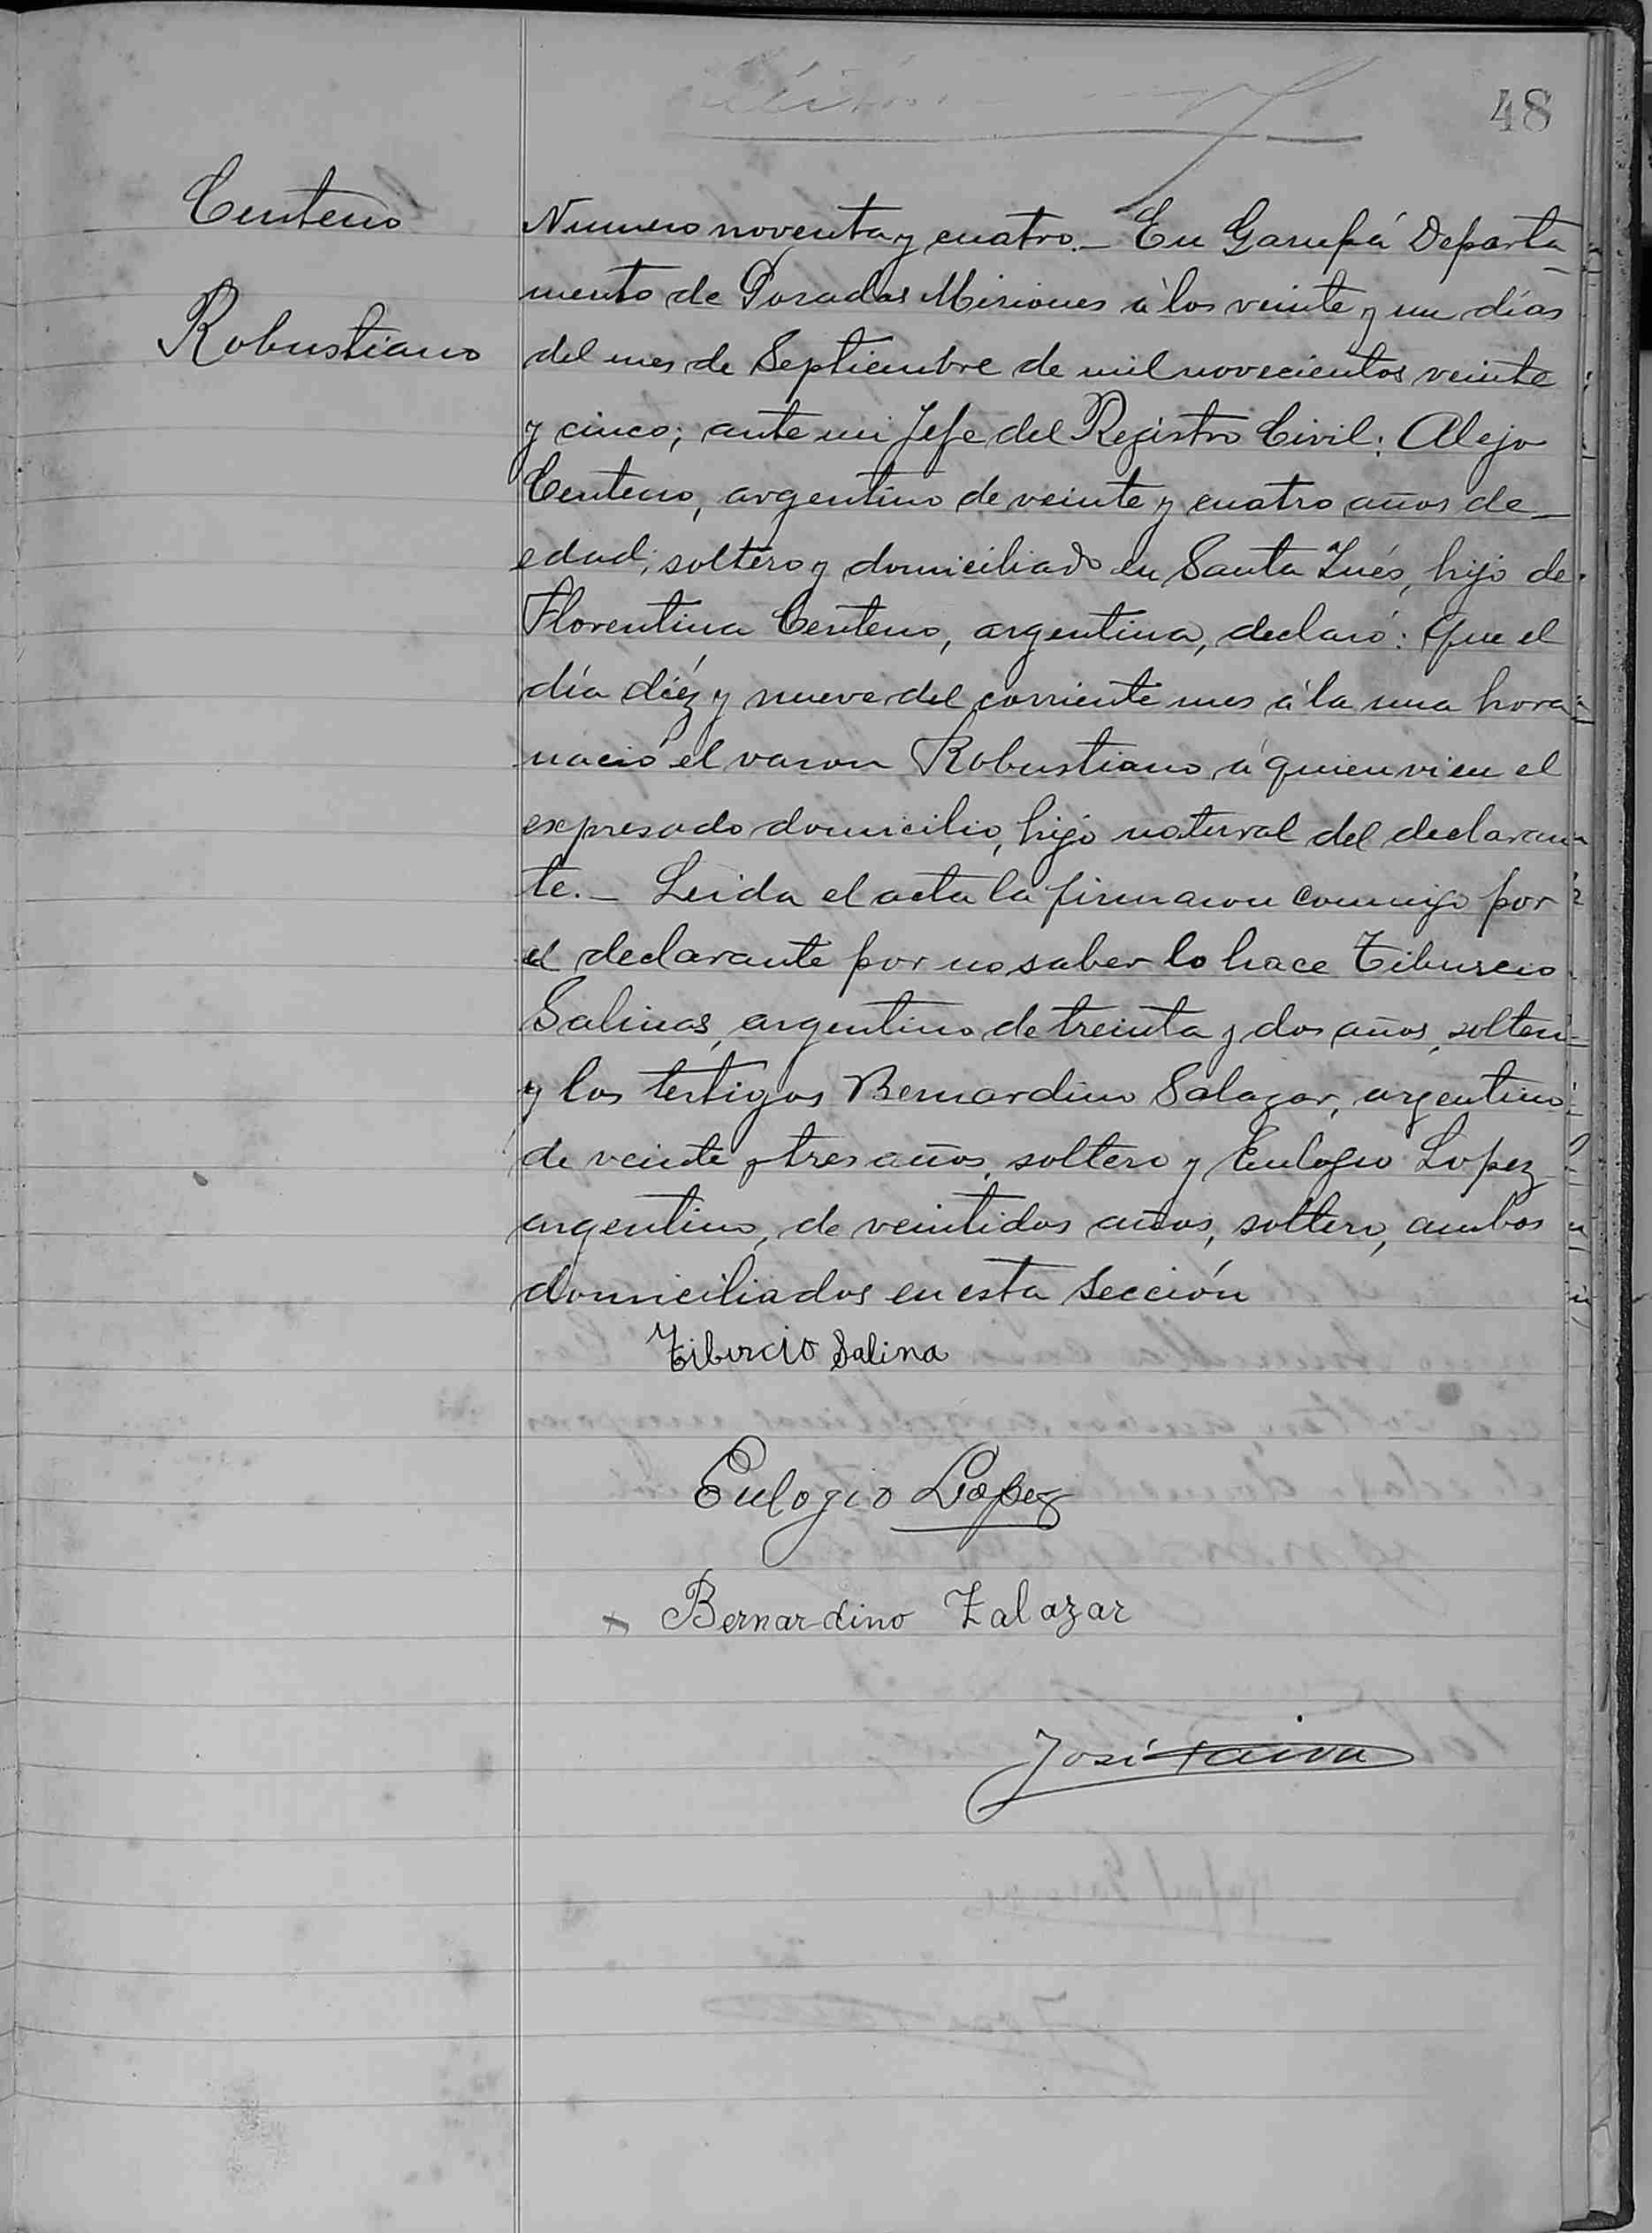 48
Centeno
Robustiano
Numero noventa y cuatro._ En Garupá Departa_
mento de Posadas Misiones á los veinte y un días
del mes de Septiembre de mil novecientos veinte
y cinco; ante mi Jefe del Registro Civil: Alejo
Centeno, argentino de veinte y cuatro años de_
edad, soltero y domiciliado en Santa Inés, hijo de
Florentina Centeno, argentina, declaró: Que el
día diéz y nueve del corriente mes á la una hora
nació el varon Robustiano á quien vi en el
expresado domicilio, hijo natural del declaran
te._ Leida el acta la firmaron conmigo por
el declarante por no saber lo hace Tiburcio
Salinas, argentino de treinta y dos años, soltero
y los testigos Bernardino Salazar, argentino
de veinte y tres años, soltero y Eulogio Lopez
argentino, de veintidos años, soltero, ambos
domiciliados en esta Sección
Tibircio Salina
Eulogio Lopez
Bernardino Zalazar
José Paiva